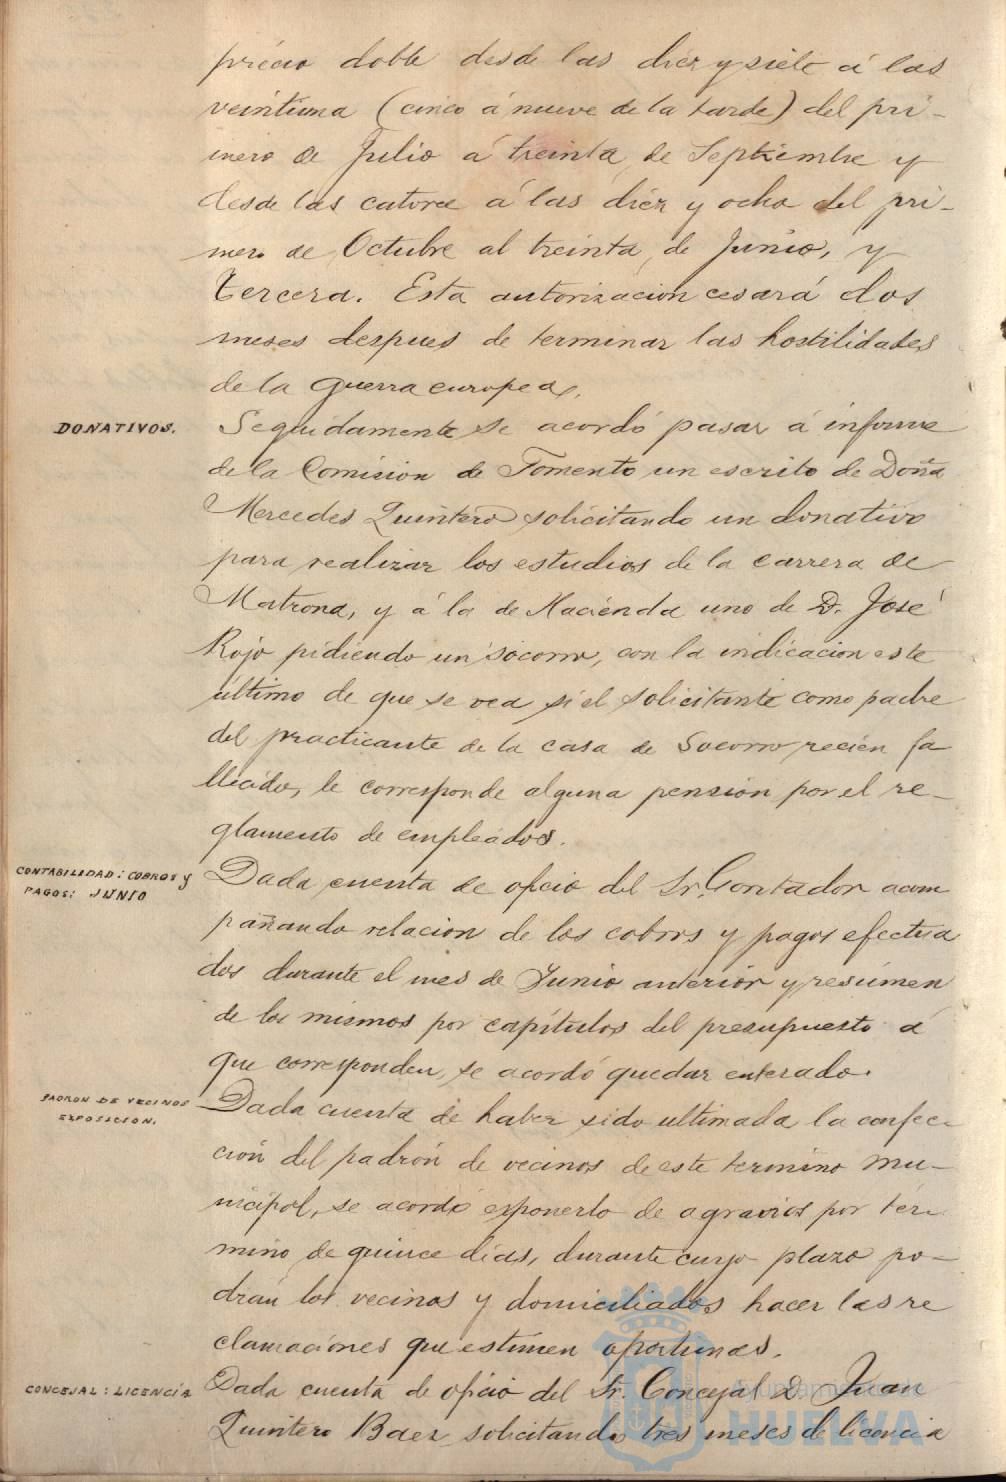 précio doble desde las diéz y siete á las
veintiuna (cinco á nueve de la tarde) del pri-
mero de Julio á treinta de Septiembre y
desde las catorce á las diéz y ocho del pri-
mero de Octubre al treinta de Junio, y
Tercera. Esta autorizacion cesará dos
meses despues de terminar las hostilidades
de la guerra europea.
DONATIVOS.
Seguidamente se acordó pasar á informe
de la Comision de Fomento un escrito de Doña
Mercedes Quintero solicitando un donativo
para realizar los estudios de la carrera de
Matrona, y á la de Hacienda uno de D. José
Rojo pidiendo un socorro, con la indicacion este
último de que se vea si el solicitante como padre
del practicante de la casa de Socorro recien fa
llecido, le corresponde alguna pensión por el re-
glamento de empleados.
CONTABILIDAD: COBROS Y
PAGOS: JUNIO
Dada cuenta de oficio del Sr. Contador acom
pañando relacion de los cobros y pagos efectua
dos durante el mes de Junio anterior y resúmen
de los mismos por capítulos del presupuesto á
que corresponden, se acordó quedar enterado.
PADRON DE VECINOS
EXPOSICION.
Dada cuenta de haber sido ultimada la confec-
ción del padrón de vecinos de este termino mu-
nicipal, se acordó exponerlo de agravios por tér-
mino de quince dias, durante cuyo plazo po-
drán los vecinos y domiciliados hacer las re
clamaciones que estimen oportunas.
CONCEJAL: LICENCIA
Dada cuenta de oficio del Sr. Concejal D. Juan
Quintero Baez solicitando tres meses de licencia
Ayuntamiento de
HUELVA